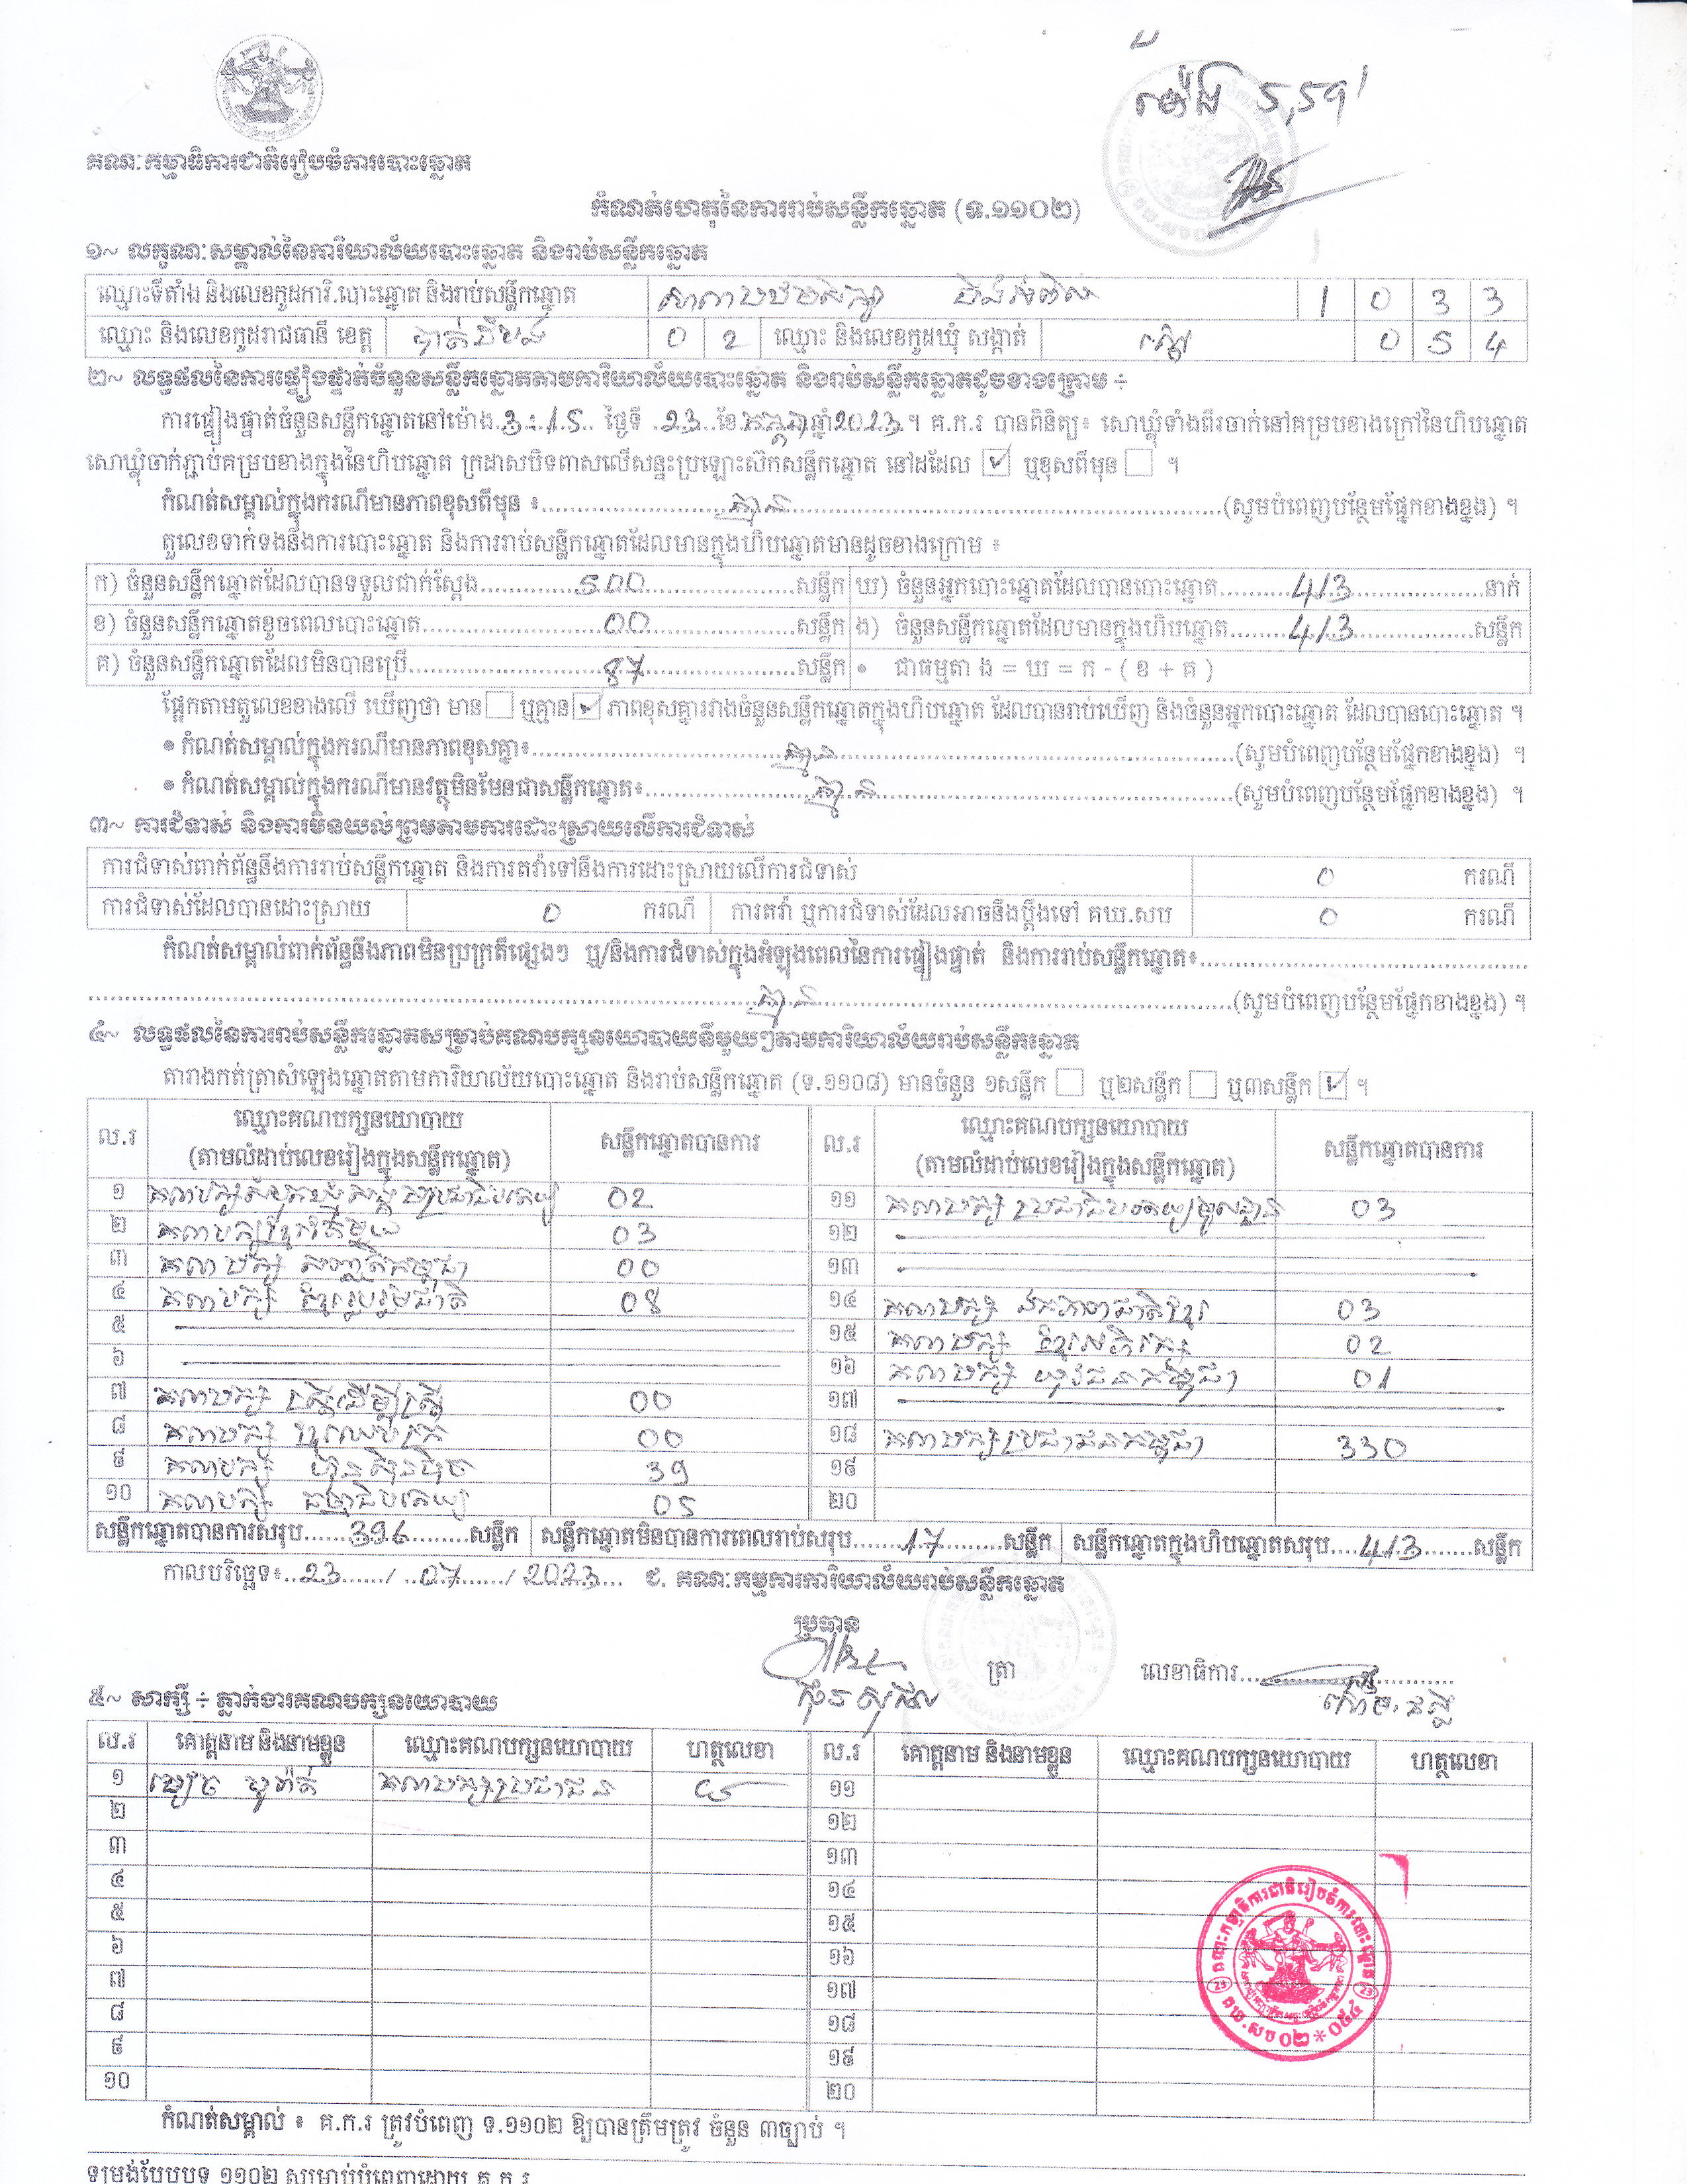 ម៉ោង 5,59'
គណៈកម្មាធិការជាតិរៀបចំការបោះឆ្នោត
កំណត់ហេតុនៃការរាប់សន្លឹកឆ្នោត (ទ.១១០២)
១~ លក្ខណៈសម្គាល់នៃការិយាល័យបោះឆ្នោត និងរាប់សន្លឹកឆ្នោត
ឈ្មោះទីតាំង និងលេខកូដការិ.បោះឆ្នោត និងរាប់សន្លឹកឆ្នោត សាលាបឋមសិក្សា 1 0 3 3
ឈ្មោះ និងលេខកូដរាជធានី ខេត្ត បាត់ដំបង 0 2 ឈ្មោះ និងលេខកូដឃុំ សង្កាត់ 0 5 4
២~ លទ្ធផលនៃការផ្ទៀងផ្ទាត់ចំនួនសន្លឹកឆ្នោតតាមការិយាល័យបោះឆ្នោត និងរាប់សន្លឹកឆ្នោតដូចខាងក្រោម ÷
ការផ្ទៀងផ្ទាត់ចំនួនសន្លឹកឆ្នោតនៅម៉ោង 3:15 ថ្ងៃទី 23 ខែ កក្កដា ឆ្នាំ 2023 ។ គ.ក.រ បានពិនិត្យ៖ សោឃ្លុំទាំងពីរចាក់នៅគម្របខាងក្រៅនៃហិបឆ្នោត
សោឃ្លុំចាក់ភ្ជាប់គម្របខាងក្នុងនៃហិបឆ្នោត ក្រដាសបិទពាសលើសន្ទះប្រឡោះស៊កសន្លឹកឆ្នោត នៅដដែល ☑ ឬខុសពីមុន ☐ ។
កំណត់សម្គាល់ក្នុងករណីមានភាពខុសពីមុន ៖ គ្មាន (សូមបំពេញបន្ថែមផ្នែកខាងខ្នង) ។
តួលេខទាក់ទងនឹងការបោះឆ្នោត និងការរាប់សន្លឹកឆ្នោតដែលមានក្នុងហិបឆ្នោតមានដូចខាងក្រោម ៖
ក) ចំនួនសន្លឹកឆ្នោតដែលបានទទួលជាក់ស្តែង 500 សន្លឹក ឃ) ចំនួនអ្នកបោះឆ្នោតដែលបានបោះឆ្នោត 413 នាក់
ខ) ចំនួនសន្លឹកឆ្នោតខូចពេលបោះឆ្នោត 00 សន្លឹក ង) ចំនួនសន្លឹកឆ្នោតដែលមានក្នុងហិបឆ្នោត 413 សន្លឹក
គ) ចំនួនសន្លឹកឆ្នោតដែលមិនបានប្រើ 87 សន្លឹក • ជាធម្មតា ង = ឃ = ក - ( ខ + គ )
ផ្អែកតាមតួលេខខាងលើ ឃើញថា មាន ☐ ឬគ្មាន ☑ ភាពខុសគ្នារវាងចំនួនសន្លឹកឆ្នោតក្នុងហិបឆ្នោត ដែលបានរាប់ឃើញ និងចំនួនអ្នកបោះឆ្នោត ដែលបានបោះឆ្នោត ។
• កំណត់សម្គាល់ក្នុងករណីមានភាពខុសគ្នា៖ គ្មាន (សូមបំពេញបន្ថែមផ្នែកខាងខ្នង) ។
• កំណត់សម្គាល់ក្នុងករណីមានវត្ថុមិនមែនជាសន្លឹកឆ្នោត៖ គ្មាន (សូមបំពេញបន្ថែមផ្នែកខាងខ្នង) ។
៣~ ការជំទាស់ និងការមិនយល់ព្រមតាមការដោះស្រាយលើការជំទាស់
ការជំទាស់ពាក់ព័ន្ធនឹងការរាប់សន្លឹកឆ្នោត និងការតវ៉ាទៅនឹងការដោះស្រាយលើការជំទាស់ 0 ករណី
ការជំទាស់ដែលបានដោះស្រាយ 0 ករណី ការតវ៉ា ឬការជំទាស់ដែលអាចនឹងប្តឹងទៅ គឃ.សប 0 ករណី
កំណត់សម្គាល់ពាក់ព័ន្ធនឹងភាពមិនប្រក្រតីផ្សេងៗ ឬ/និងការជំទាស់ក្នុងអំឡុងពេលនៃការផ្ទៀងផ្ទាត់ និងការរាប់សន្លឹកឆ្នោត៖
គ្មាន (សូមបំពេញបន្ថែមផ្នែកខាងខ្នង) ។
៤~ លទ្ធផលនៃការរាប់សន្លឹកឆ្នោតសម្រាប់គណបក្សនយោបាយនីមួយៗតាមការិយាល័យរាប់សន្លឹកឆ្នោត
តារាងកត់ត្រាសំឡេងឆ្នោតតាមការិយាល័យបោះឆ្នោត និងរាប់សន្លឹកឆ្នោត (ទ.១១០៨) មានចំនួន ១សន្លឹក ☐ ឬ២សន្លឹក ☐ ឬ៣សន្លឹក ☑ ។
ល.រ ឈ្មោះគណបក្សនយោបាយ សន្លឹកឆ្នោតបានការ ល.រ ឈ្មោះគណបក្សនយោបាយ សន្លឹកឆ្នោតបានការ
(តាមលំដាប់លេខរៀងក្នុងសន្លឹកឆ្នោត) (តាមលំដាប់លេខរៀងក្នុងសន្លឹកឆ្នោត)
១ គណបក្សសំបុកឃ្មុំសង្គមប្រជាធិបតេយ្យ 02 ១១ គណបក្សប្រជាធិបតេយ្យមូលដ្ឋាន 03
២ គណបក្សខ្មែរតែមួយ 03 ១២
៣ គណបក្ស សញ្ជាតិកម្ពុជា 00 ១៣
៤ គណបក្ស ខ្មែររួបរួមជាតិ 08 ១៤ គណបក្ស ឯកភាពជាតិខ្មែរ 03
៥ ១៥ គណបក្ស ខ្មែរអភិរក្ស 02
៦ ១៦ គណបក្ស យុវជនកម្ពុជា 01
៧ គណបក្ស ស្ត្រីដើម្បីស្ត្រី 00 ១៧
៨ គណបក្ស ខ្មែរឈប់ក្រ 00 ១៨ គណបក្សប្រជាជនកម្ពុជា 330
៩ គណបក្ស ហ៊្វុនស៊ិនប៉ិច 39 ១៩
១០ គណបក្ស ធម្មាធិបតេយ្យ 05 ២០
សន្លឹកឆ្នោតបានការសរុប 396 សន្លឹក សន្លឹកឆ្នោតមិនបានការពេលរាប់សរុប 17 សន្លឹក សន្លឹកឆ្នោតក្នុងហិបឆ្នោតសរុប 413 សន្លឹក
កាលបរិច្ឆេទ៖ 23 / 07 / 2023 ជ. គណៈកម្មការការិយាល័យរាប់សន្លឹកឆ្នោត
ប្រធាន
ត្រា លេខាធិការ
៥~ សាក្សី ÷ ភ្នាក់ងារគណបក្សនយោបាយ
ល.រ គោត្តនាម និងនាមខ្លួន ឈ្មោះគណបក្សនយោបាយ ហត្ថលេខា ល.រ គោត្តនាម និងនាមខ្លួន ឈ្មោះគណបក្សនយោបាយ ហត្ថលេខា
១ គណបក្សប្រជាជន ១១
២ ១២
៣ ១៣
៤ ១៤
៥ ១៥
៦ ១៦
៧ ១៧
៨ ១៨
៩ ១៩
១០ ២០
គណៈកម្មាធិការជាតិរៀបចំការបោះឆ្នោត
23 23
គឃ.សប ០២ * ០៥៤
កំណត់សម្គាល់ ៖ គ.ក.រ ត្រូវបំពេញ ទ.១១០២ ឱ្យបានត្រឹមត្រូវ ចំនួន ៣ច្បាប់ ។
ទម្រង់បែបបទ ១១០២ សម្រាប់បំពេញដោយ គ.ក.រ